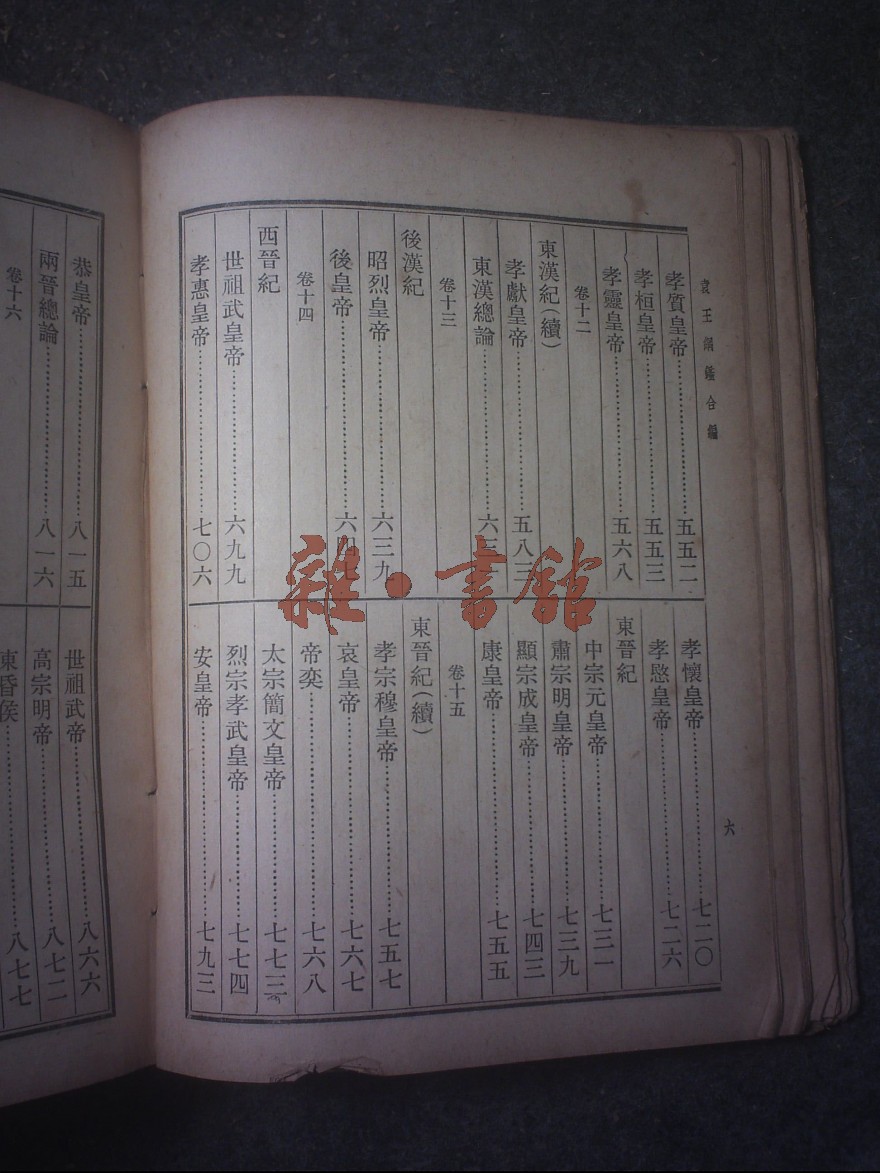 袁王綱鑑合編
孝質皇帝……五五二
孝桓皇帝……五五三
孝靈皇帝……五六八
卷十二
東漢紀(續)
孝獻皇帝……五八三
東漢總論……六三
卷十三
後漢紀
昭烈皇帝……六三九
後皇帝……六四
卷十四
西晉紀
世祖武皇帝……六九九
孝惠皇帝……七〇六
孝懷皇帝……七二〇
孝愍皇帝……七二六
東晉紀
中宗元皇帝……七三一
肅宗明皇帝……七三九
顯宗成皇帝……七四三
康皇帝……七五五
卷十五
東晉紀(續)
孝宗穆皇帝……七五七
哀皇帝……七六七
帝奕……七六八
太宗簡文皇帝……七七三
烈宗孝武皇帝……七七四
安皇帝……七九三
六
恭皇帝……八一五
兩晉總論……八一六
卷十六
世祖武帝……八六六
高宗明帝……八七二
東昏侯……八七七
雜·書館